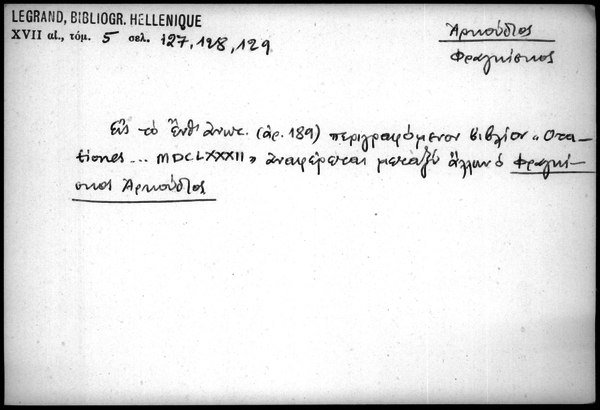 LEGRAND, BIBLIOGR. HELLENIQUE
XVII αἰ., τόμ. 5 σελ. 127, 128, 129
Ἀρκούδιος
Φραγκίσκος
Εἰς τὸ ἔνθ' ἀνωτ. (ἀρ. 189) περιγραφόμενον βιβλίον «Ora-
tiones ... MDCLXXXII» ἀναφέρεται μεταξὺ ἄλλων ὁ Φραγκί-
σκος Ἀρκούδιος